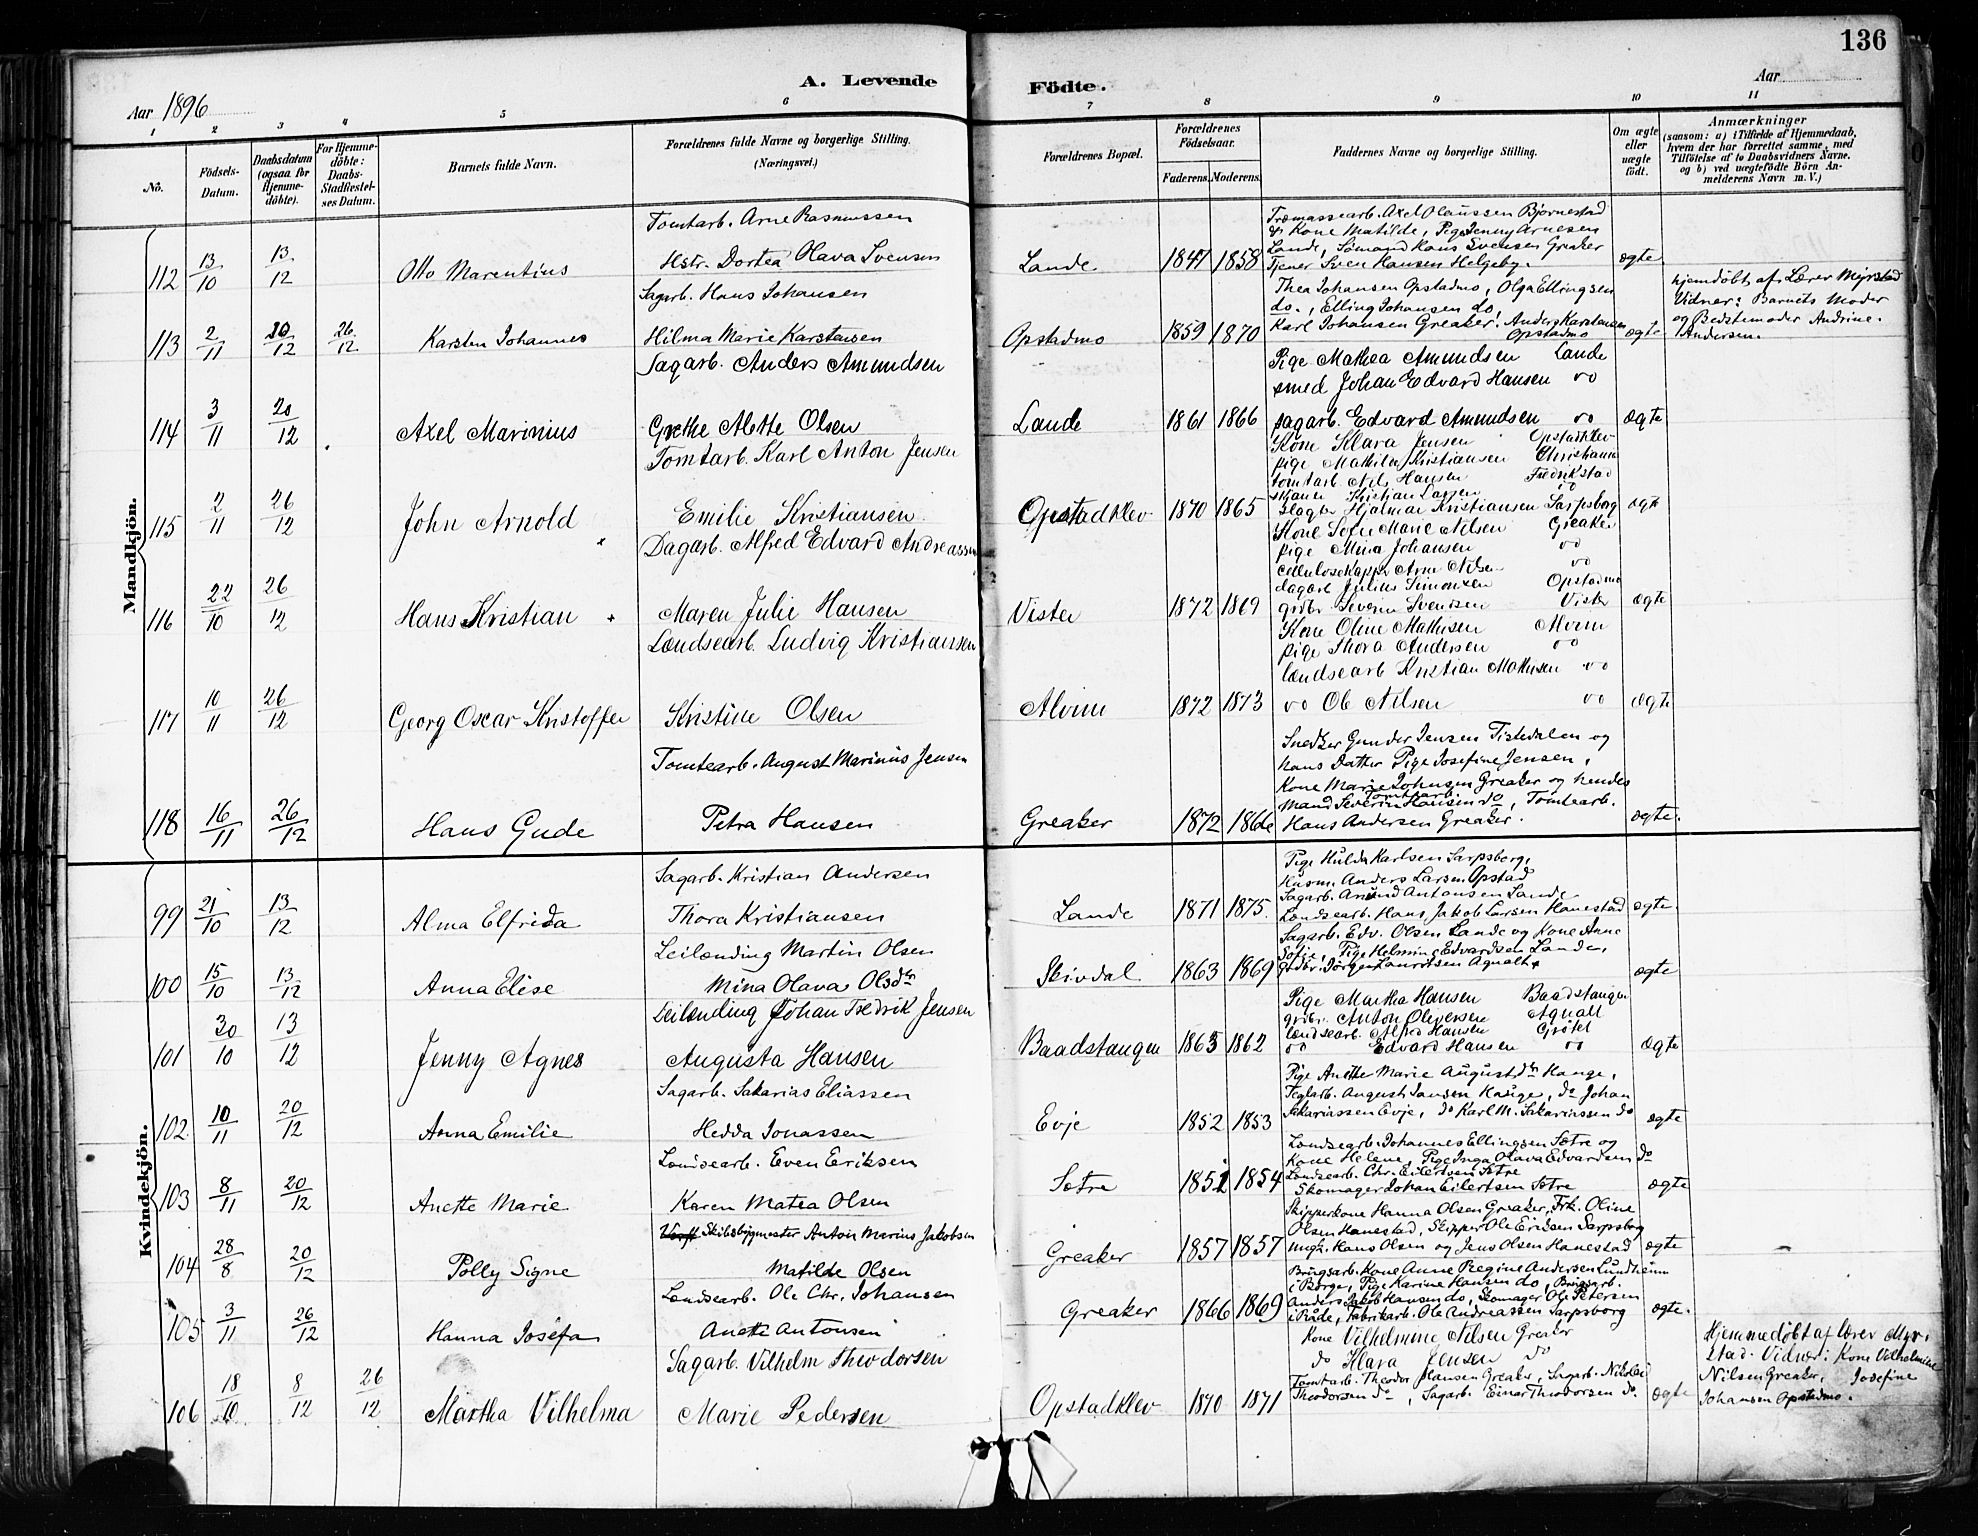 136
A. Levende Födte.
Aar 1896
Aar
1 2 3 4 5 6 7 8 9 10 11
No.
Födsels-Datum.
Daabsdatum (ogsaa for Hjemme-döbte).
For Hjemme-döbte: Daabs-Stadfæstel-ses Datum.
Barnets fulde Navn.
Forældrenes fulde Navne og borgerlige Stilling. (Næringsvei.)
Forældrenes Bopæl.
Forældrenes Födselsaar.
Faderens. Moderens.
Faddernes Navne og borgerlige Stilling.
Om ægte eller uægte födt.
Anmærkninger
(saasom: a) i Tilfælde af Hjemmedaab, hvem der har forrettet samme, med Tilföielse af to Daabsvidners Navne. og b) ved uægtefödte Börn Anmelderens Navn m. V.)
Mandkjön.
112 13/10 13/12 Otto Marentius
Tomtarb. Arne Rasmussen
Hstr. Dortea Olava Svensen
Lande 1847 1858
Træmassearb. Axel Olaussen Bjørnestad
& Kone Matilde, Pige Jenny Arnesen
Lande, Sømand Hans Svensen Greaker
Tjener Sven Hansen Helgeby.
ægte
113 2/11 20/12 26/12 Karsten Johannes
Sagarb. Hans Johansen
Hilma Marie Karstensen
Opstadmo 1859 1870
Thea Johansen Opstadmo, Olga Ellingsen
do., Elling Johansen do,
Karl Johansen Greaker, Anders Karstensen
Opstadmo
ægte
hjemdøbt af Lærer Myrstad
Vidner: Barnets Moder
og Bedstemoder Andrine
Andersen.
114 3/11 20/12 Axel Marinius
Sagarb. Anders Amundsen
Grethe Alette Olsen
Lande 1861 1866
Pige Mathea Amundsen Lande
smed Johan Edvard Hansen do
sagarb. Edvard Amundsen do
ægte
115 2/11 26/12 John Arnold
Tomtarb. Karl Anton Jensen
Emilie Kristiansen
Opstadklev 1870 1865
Kone Klara Jensen Opstadklev
pige Mathilde Kristiansen Christiania
tomtarb Nils Hansen Fredrikstad
Kristian Larsen do
Hjalmar Kristiansen Sarpsborg
ægte
116 22/10 26/12 Hans Kristian
Dagarb. Alfred Edvard Andreassen
Maren Julie Hansen
Vister 1872 1869
Kone Sofie Marie Nilsen Greaker
pige Mina Johansen do
Arne Nilsen do
dagarb Julius Simonsen Opstadmo
grdbr Severin Svendsen Vister
ægte
117 10/11 26/12 Georg Oscar Kristoffer
Lændsearb. Ludvig Kristiansen
Kristine Olsen
Alvim 1872 1873
Kone Oline Mathisen Alvim
pige Thora Andersen do
lændsearb Kristian Mathisen do
do Ole Nilsen do
ægte
118 16/11 26/12 Hans Gude
Tomtearb. August Marinius Jensen
Petra Hansen
Greaker 1872 1866
Snedker Gunder Jensen Tistedalen og
hans Datter Pige Josefine Jensen,
Kone Marie Johnsen Greaker og hendes
Mand Tomtearb. Severin Hansen do, Tomtearb.
Hans Andersen Greaker.
ægte.
Kvindekjön.
99 21/10 13/12 Alma Elfrida
Sagarb. Kristian Andersen
Thora Kristiansen
Lande 1871 1875.
Pige Hulda Karlsen Sarpsborg,
Husm. Anders Larsen Opstad
Sagarb. Amund Antonsen Lande
Lændsearb. Hans Jakob Larsen Hanestad
ægte.
100 15/10 13/12 Anna Elise
Leilænding Martin Olsen
Mina Olava Olsdtr
Skivdal 1863 1869
Sagarb. Edv. Olsen Lande og Kone Anne
Sofie, Pige Helmine Edvardsen Lande,
Grdbr. Jørgen Lauritsen Agnalt
ægte
101 30/10 13/12 Jenny Agnes
Leilænding Johan Fredrik Jensen
Augusta Hansen
Baadstangen 1863 1862
Pige Martha Hansen Baadstangen
grdbr. Anton Oliversen Agnalt
lændsearb. Alfred Hansen Grøtet
do Edvard Hansen do
ægte
102 10/11 20/12 Anna Emilie
Sagarb. Sakarias Eliassen
Hedda Jonassen
Evje 1852 1853
Pige Anette Marie Augustdtr Hauge,
Teglarb. August Jansen Hauge, do Johan
Sakariassen Evje, do Karl M. Sakariassen do
ægte
103 8/11 20/12 Anette Marie
Lændsearb. Even Eriksen
Karen Matea Olsen
Sætre 1851 1854
Lændsearb. Johannes Ellingsen Sætre og
Kone Helene, Pige Inga Olava Edvardsen do
Lændsearb. Chr. Eilertsen Sætre
Skomager Johan Eilertsen Sætre
ægte
104 28/8 20/12 Polly Signe
Skibsbygmester Anton Marius Jakobsen
Matilde Olsen
Greaker 1857 1857
Skipperkone Hanna Olsen Greaker, Frk. Oline
Olsen Hanestad, Skipper Ole Eriksen Sarpsborg
Ungk. Hans Olsen og Jens Olsen Hanestad
ægte
105 3/11 26/12 Hanna Josefa
Lændsearb. Ole Chr. Johansen
Anette Antonsen
Greaker 1866 1869
Brugsarb. Kone Anne Regine Andersen Lundheim
i Borge, Pige Karine Hansen do, Brugsarb.
Anders Jakob Hansen do, Skomager Ole Petersen
i Råde, Fabrikarb. Ole Andreassen Sarpsborg
ægte.
106 18/10 8/12 26/12 Martha Vilhelma
Sagarb. Vilhelm Theodorsen
Marie Pedersen
Opstadklev 1870 1871
Kone Vilhelmine Nilsen Greaker
do Klara Jensen do
Tomtarb. Theodor Hansen Greaker, Sagarb. Nikolai
Theodorsen do, Sagarb. Einar Theodorsen do.
ægte
Hjemmedøbt af lærer Myr-
stad. Vidner: Kone Vilhelmine
Nilsen Greaker, Josefine
Johansen Opstadmo.